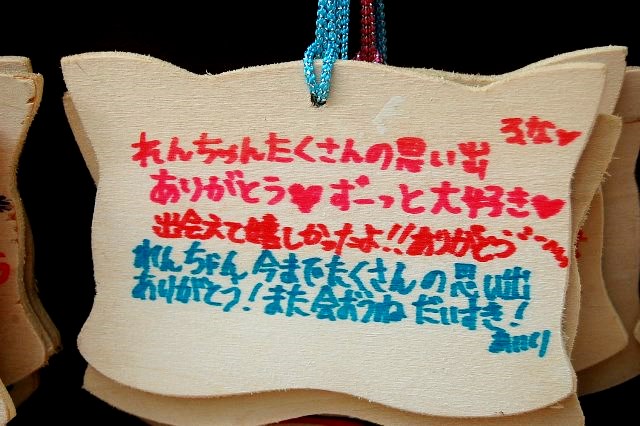 るな♥
れんちゃんたくさんの思い出
ありがとう♥ずーっと大好き♥
出会えて嬉しかったよ!!ありがとう
れんちょん今までたくさんの思い出
ありがとう!また会おうね だいすき!